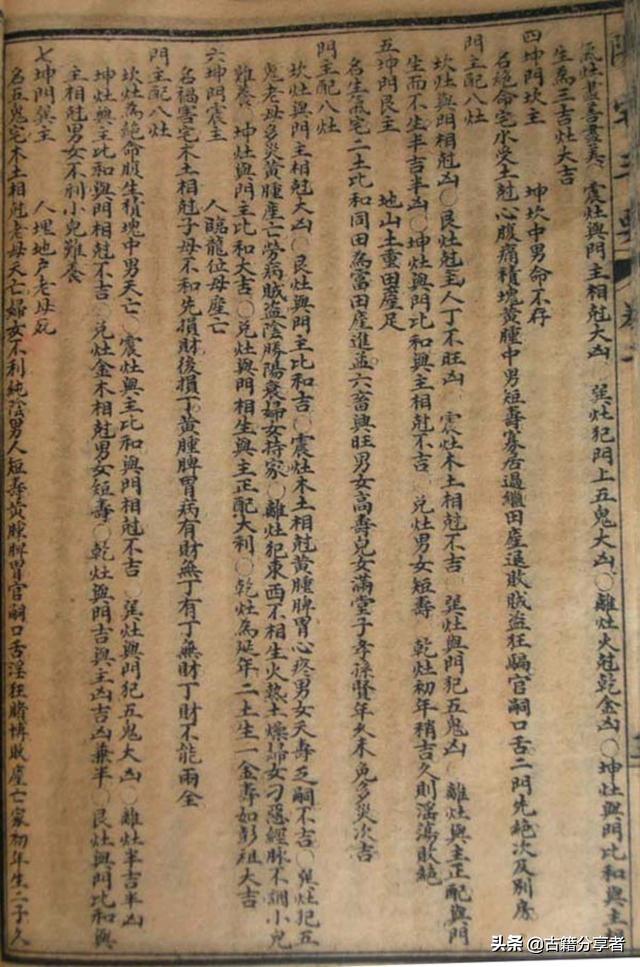 陽宅三要 卷二
氣灶盡善盡美 震灶與門主相尅大凶 ○ 巽灶犯門上五鬼大凶 ○ 離灶火尅乾金凶 ○ 坤灶與門比和與主
生為三吉灶大吉
四坤門坎主 坤坎中男命不存
名絕命宅水受土尅心腹痛積塊黃腫中男短壽寡居過繼田產退敗賊盜狂騙官嗣口舌二門先絕次及別房
門主配八灶
坎灶與門相尅凶 ○ 艮灶尅主人丁不旺凶 震灶木土相尅不吉 巽灶與門犯五鬼凶 離灶與主正配與門
生而不生半吉半凶 ○ 坤灶與門比和與主相尅不吉 ○ 兌灶男女短壽 乾灶初年稍吉久則淫蕩敗絕
五坤門艮主 地山土重田產足
名生氣宅二土比和同田為富田產進益六畜興旺男女高壽兒女滿堂子孝孫賢年久未免多災次吉
門主配八灶
坎灶與門主相尅大凶 ○ 艮灶與門主比和吉 ○ 震灶木土相尅黃腫脾胃心疼男女夭壽乏嗣不吉 ○ 巽灶犯五
鬼老母多災黃腫產亡勞病賊盜陰勝陽衰婦女持家 ○ 離灶犯東西不相生火熱土燥婦女刁惡經脉不調小兒
難養 坤灶與門主比和大吉 ○ 兌灶與門相生與主正配大利 ○ 乾灶為延年二土生一金壽如彭祖大吉
六坤門震主 人臨龍位母產亡
名禍害宅木土相尅子母不和先損財後損丁黃腫脾胃病有財無丁有丁無財丁財不能兩全
門主配八灶
坎灶為絕命腹生積塊中男夭亡 震灶與主比和與門相尅不吉 巽灶與門犯五鬼大凶 離灶半吉半凶
坤灶與主比和與門相尅不吉 ○ 兌灶金木相尅男女短壽 ○ 乾灶與門吉與主凶吉凶兼半 ○ 艮灶與門比和與
主相尅男女不利小兒難養
七坤門巽主 人埋地户老母死
名五鬼宅木土相尅老母夭亡婦女不利純陰男人短壽黃腫脾胃官嗣口舌淫狂賭博敗產亡家初年生二子久
头条 @古籍分享者